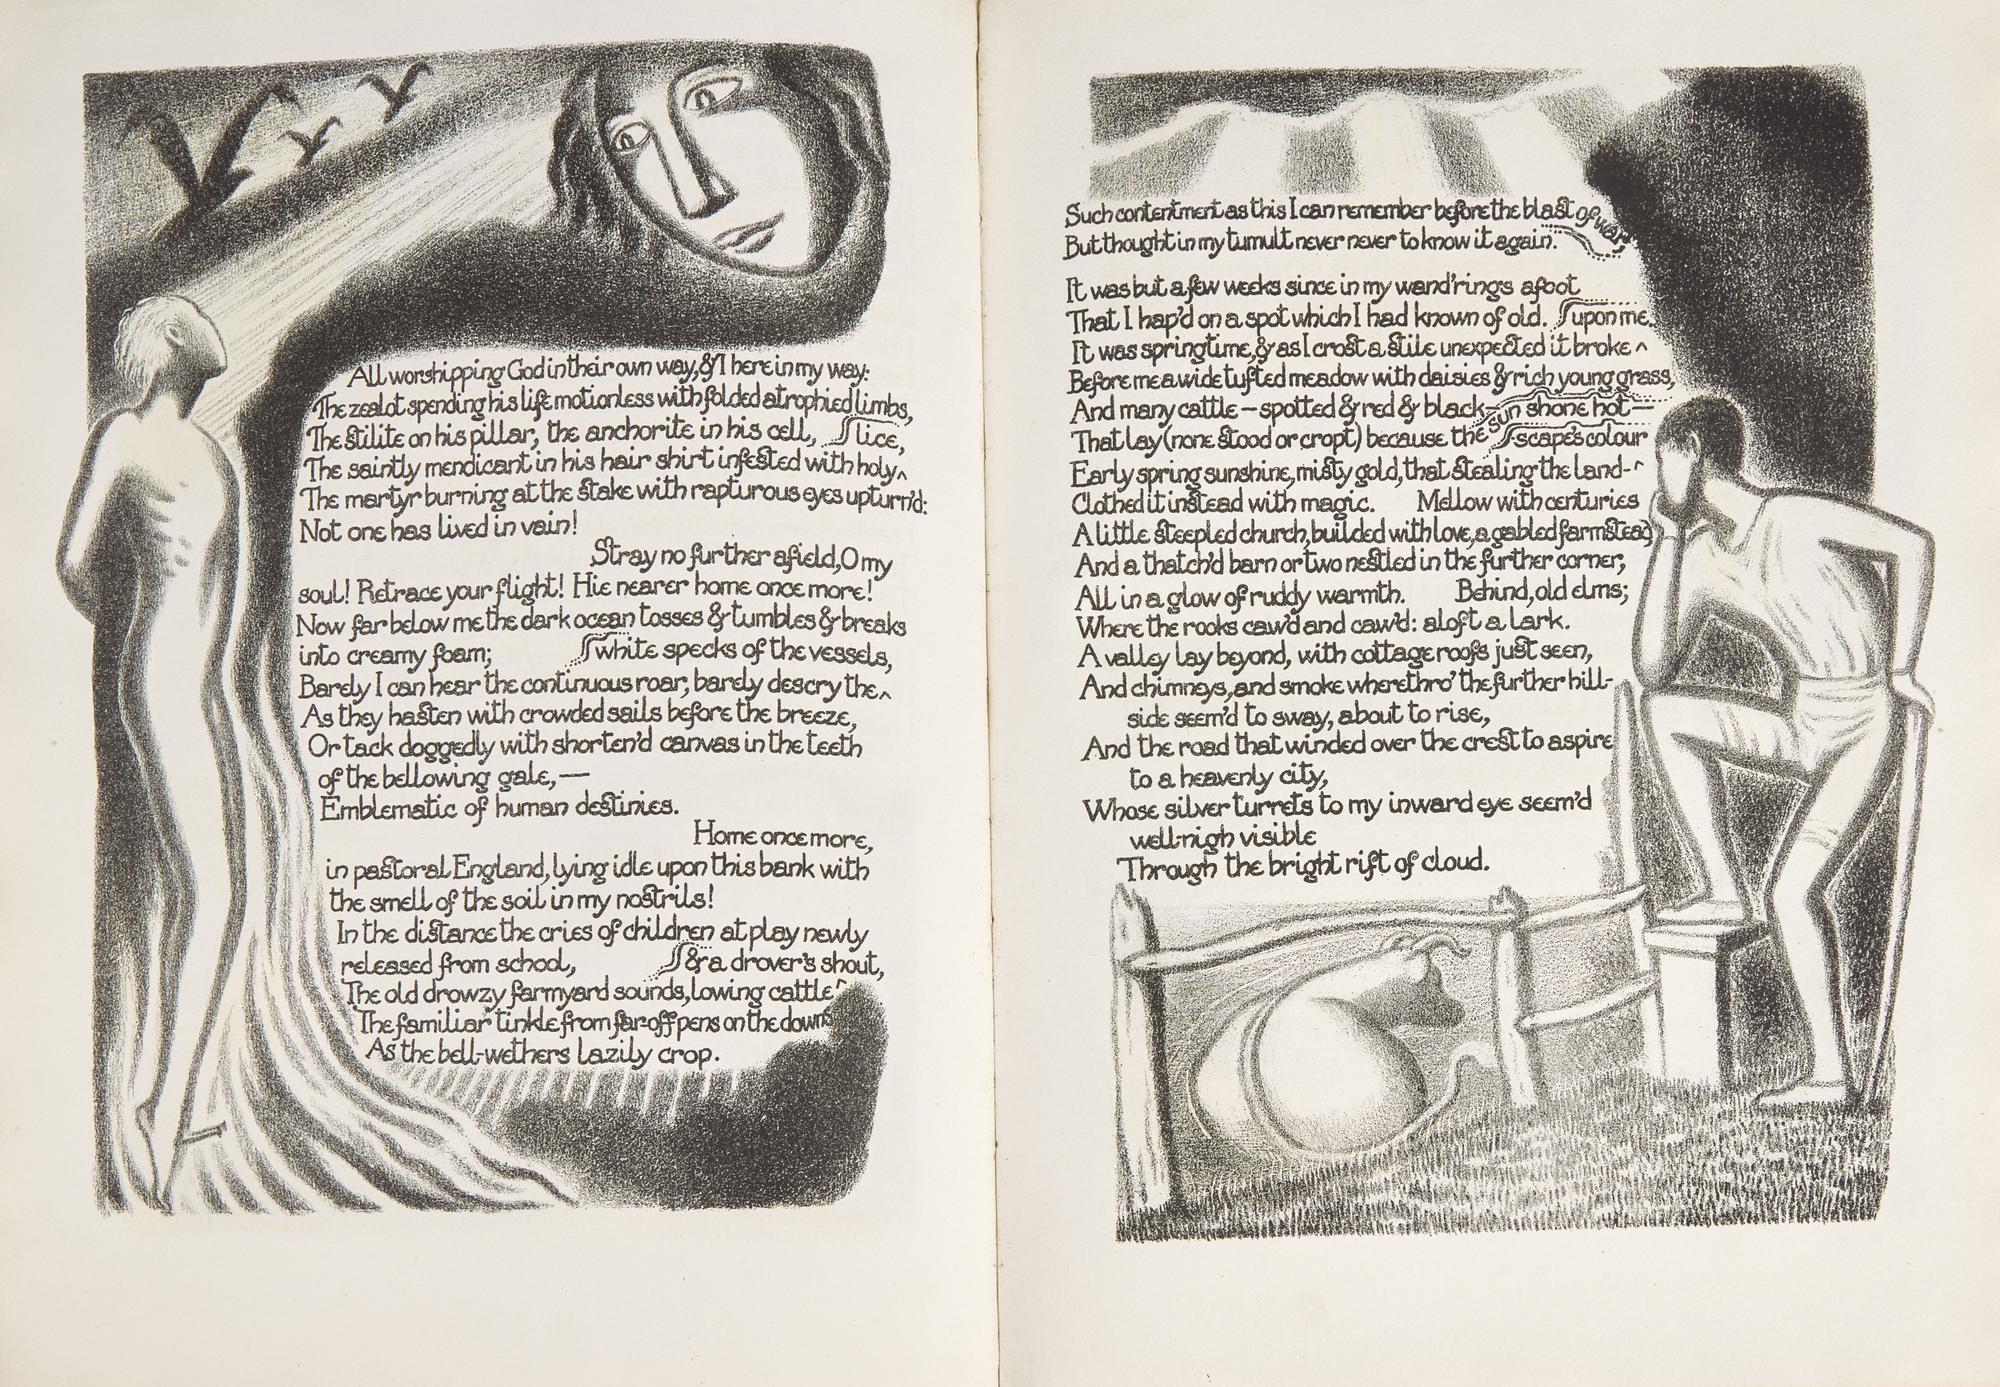 All worshipping God in their own way, & I here in my way:
The zealot spending his life motionless with folded atrophied limbs,
The stilite on his pillar, the anchorite in his cell,
The saintly mendicant in his hair shirt infested with holy^ lice,
The martyr burning at the stake with rapturous eyes upturn'd:
Not one has lived in vain!
Stray no further afield, O my
soul! Retrace your flight! Hie nearer home once more!
Now far below me the dark ocean tosses & tumbles & breaks
into creamy foam;
Barely I can hear the continuous roar, barely descry the^ white specks of the vessels,
As they hasten with crowded sails before the breeze,
Or tack doggedly with shorten'd canvas in the teeth
of the bellowing gale,—
Emblematic of human destinies.
Home once more,
in pastoral England, lying idle upon this bank with
the smell of the soil in my nostrils!
In the distance the cries of children at play newly
released from school,
The old drowzy farmyard sounds, lowing cattle^ & a drover's shout,
The familiar tinkle from far-off pens on the downs
As the bell-wethers lazily crop.
Such contentment as this I can remember before the blast of war,
But thought in my tumult never never to know it again.
It was but a few weeks since in my wand'rings afoot
That I hap'd on a spot which I had known of old.
It was springtime, & as I crost a stile unexpected it broke^ upon me.
Before me a wide tufted meadow with daisies & rich young grass,
And many cattle – spotted & red & black –
That lay (none stood or cropt) because the sun shone hot —
Early spring sunshine, misty gold, that stealing the land-^scape's colour
Clothed it instead with magic. Mellow with centuries
A little steepled church, builded with love, a gabled farmstead,
And a thatch'd barn or two nestled in the further corner,
All in a glow of ruddy warmth. Behind, old elms;
Where the rooks caw'd and caw'd: aloft a lark.
A valley lay beyond, with cottage roofs just seen,
And chimneys, and smoke where thro' the further hill-
side seem'd to sway, about to rise,
And the road that winded over the crest to aspire
to a heavenly city,
Whose silver turrets to my inward eye seem'd
well-nigh visible
Through the bright rift of cloud.